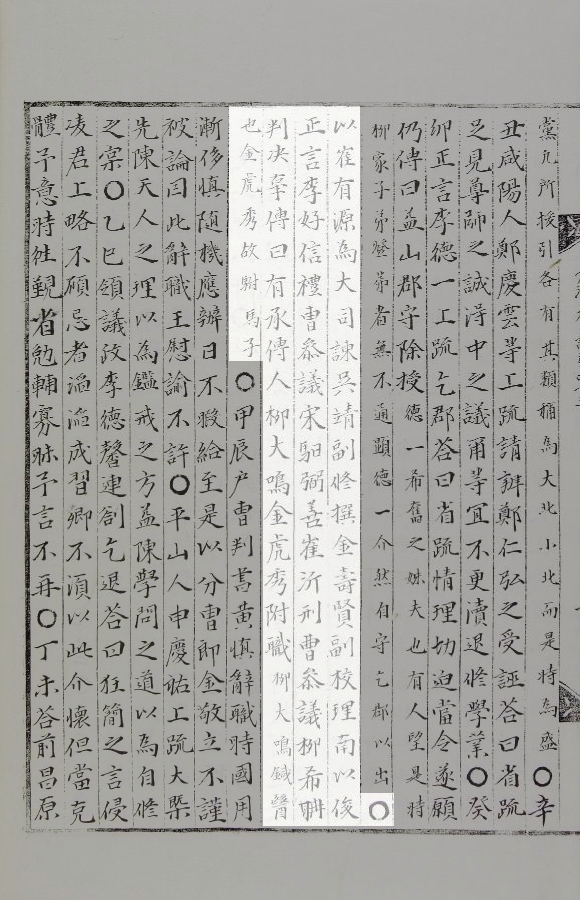 黨凡所援引各有其類稱爲大北小北而是時爲盛○辛
丑咸陽人鄭慶雲等上疏請辨鄭仁弘之受誣答曰省疏
足見尊師之誠得中之議爾等宜不更瀆退修學業○癸
卯正言李德一上疏乞郡答曰省疏情理切迫當令遂願
仍傳曰益山郡守除授德一希奮之妹夫也有人望是時
柳家子弟登第者無不通顯德一介然自守乞郡以出○
以崔有源爲大司諫吳靖副修撰金壽賢副校理南以俊
正言李好信禮曹參議宋馹弼善崔沂刑曹參議柳希聃
判决事傳曰有承傳人柳大鳴金虎秀附職柳大鳴鍼醫
也金虎秀故駙馬子○甲辰戶曹判書黃愼辭職時國用
漸侈愼隨機應辦日不暇給至是以分曹郎金敬立不謹
被論因此辭職王慰諭不許○平山人申慶祐上疏大槩
先陳天人之理以爲鑑戒之方益陳學問之道以爲自修
之稟○乙巳領議政李德馨連劄乞退答曰狂簡之言侵
凌君上略不顧忌者滔滔成習卿不須以此介懷但當克
體予意時徃覲省勉輔寡昧予言不再○丁未答前昌原